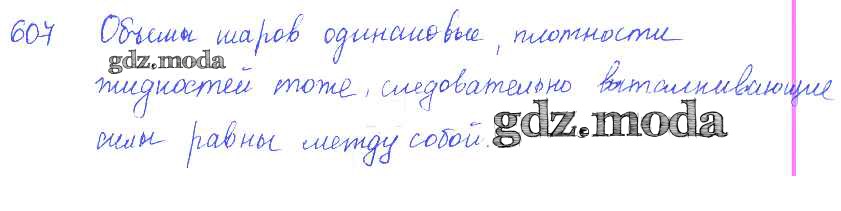 607 Объемы шаров одинаковые, плотности
gdz.moda
жидкостей тоже, следовательно выталкивающие
силы равны между собой.
gdz.moda